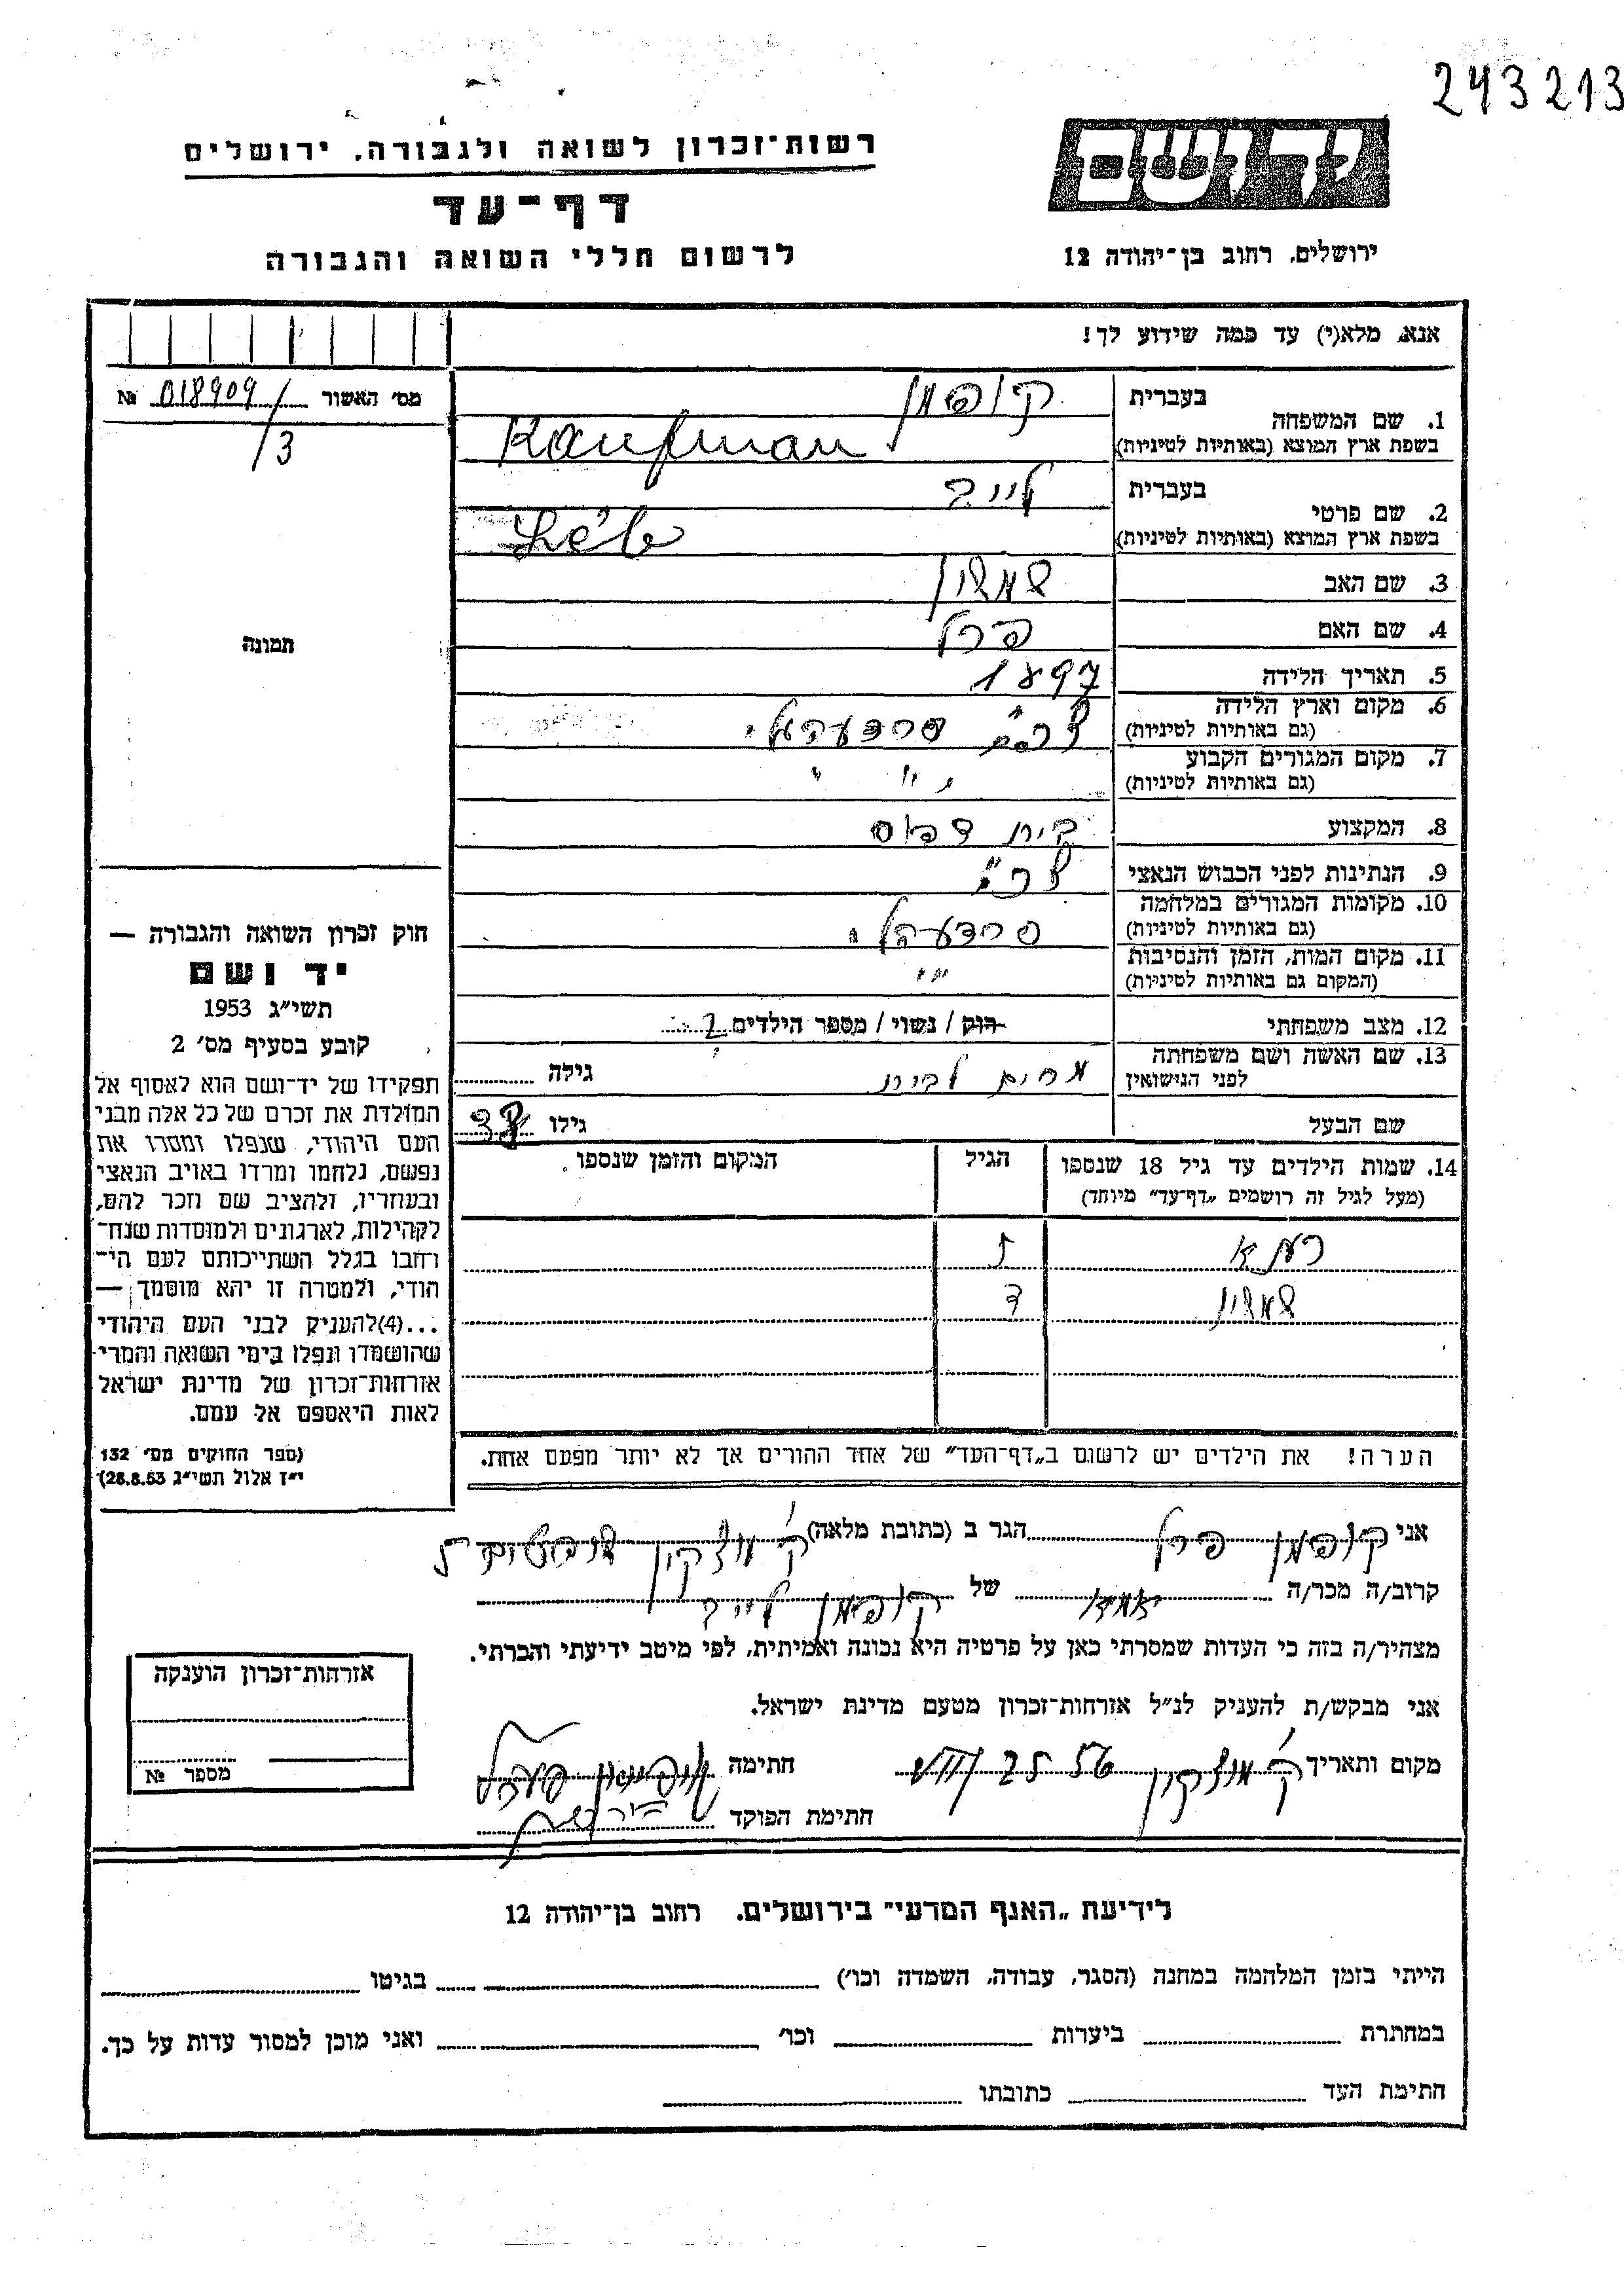 243213
יד ושם
רשות־זכרון לשואה ולגבורה, ירושלים
דף־עד
לרשום חללי השואה והגבורה
ירושלים, רחוב בן־יהודה 12
אנא, מלא(י) עד כמה שידוע לך!
מס׳ האשור № 018909/3
1. שם המשפחה
בעברית קופמן
בשפת ארץ המוצא (באותיות לטיניות) Kaufman
2. שם פרטי
בעברית לייב
בשפת ארץ המוצא (באותיות לטיניות)
3. שם האב שמשון
4. שם האם פרל
5. תאריך הלידה 1897
6. מקום וארץ הלידה
(גם באותיות לטיניות)
7. מקום המגורים הקבוע
(גם באותיות לטיניות)
8. המקצוע בית דפוס
9. הנתינות לפני הכבוש הנאצי
10. מקומות המגורים במלחמה
(גם באותיות לטיניות)
11. מקום המות, הזמן והנסיבות
(המקום גם באותיות לטיניות)
12. מצב משפחתי רוק / נשוי / מספר הילדים 2
13. שם האשה ושם משפחתה
לפני הנישואין
גילה
שם הבעל
גילו
14. שמות הילדים עד גיל 18 שנספו
(מעל לגיל זה רושמים „דף־עד״ מיוחד)
הגיל
המקום והזמן שנספו
ז
שמשון ד
הערה! את הילדים יש לרשום ב„דף־העד״ של אחד ההורים אך לא יותר מפעם אחת.
תמונה
חוק זכרון השואה והגבורה —
יד ושם
תשי״ג 1953
קובע בסעיף מס׳ 2
תפקידו של יד־ושם הוא לאסוף אל
המולדת את זכרם של כל אלה מבני
העם היהודי, שנפלו ומסרו את
נפשם, נלחמו ומרדו באויב הנאצי
ובעוזריו, ולהציב שם וזכר להם,
לקהילות, לארגונים ולמוסדות שנח־
רחבו בגלל השתייכותם לעם הי־
הודי, ולמטרה זו יהא מוסמך —
...(4)להעניק לבני העם היהודי
שהושמדו ונפלו בימי השואה והמרי
אזרחות־זכרון של מדינת ישראל
לאות היאספם אל עמם.
(ספר החוקים מס׳ 132
י״ז אלול תשי״ג 28.8.53)
אני קופמן פרל הגר ב (כתובת מלאה) ק׳ מוצקין
קרוב/ה מכר/ה של קופמן לייב
מצהיר/ה בזה כי העדות שמסרתי כאן על פרטיה היא נכונה ואמיתית, לפי מיטב ידיעתי והכרתי.
אני מבקש/ת להעניק לנ״ל אזרחות־זכרון מטעם מדינת ישראל.
מקום ותאריך ק׳ מוצקין חתימה
חתימת הפוקד
אזרחות־זכרון הוענקה
מספר №
לידיעת „האגף המדעי״ בירושלים, רחוב בן־יהודה 12
הייתי בזמן המלחמה במחנה (הסגר, עבודה, השמדה וכו׳) בגיטו
במחתרת ביערות וכו׳ ואני מוכן למסור עדות על כך.
חתימת העד כתובתו